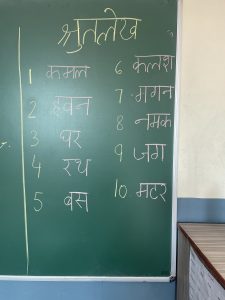 श्रुतलेख
1 कमल
2 हवन
3 घर
4 रथ
5 बस
6 कलश
7 गगन
8 नमक
9 जग
10 मटर